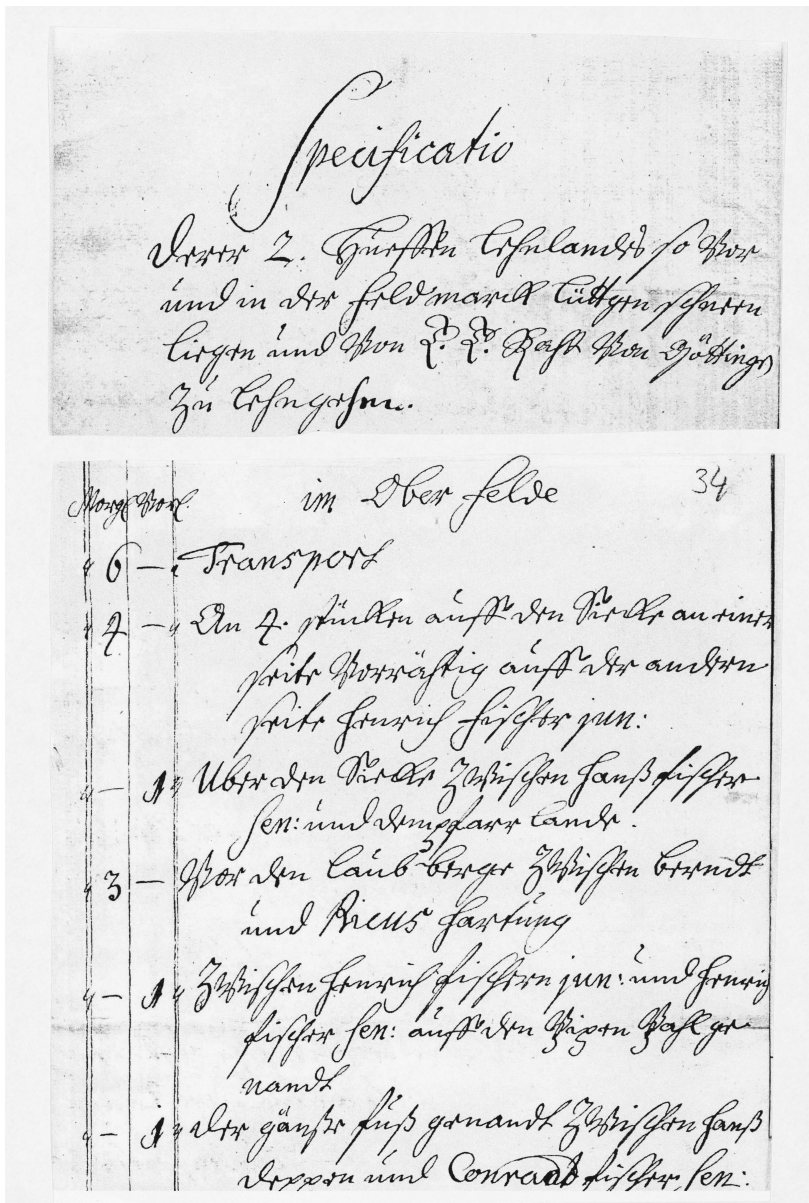 Specificatio
derer 2. Hueffen lehnlandes so Vor
und in der feldmarck lüttgen schneen
liegen und Von E. E. Raht Von Göttingen
zu lehn gehen.
34
im Ober felde
Morg Vorl.
6 — Transport
4 — An 4. stücken auff den Siecke an einer
seite Vorrähtig auff der andern
seite Henrich fischer jun:
— 1 Uber den Siecke Zwischen Hanß fischer
sen: und dem pfarr lande.
3 — Vor den laubs berge Zwischen berndt
und Ricus Hartung
— 1 Zwischen Henrich fischern jun: und Henrich
fischer sen: auff den Pipen Pahl ge
nandt
— 1 der gänse fuß genandt Zwischen Hanß
deppen und Conradt fischer sen: